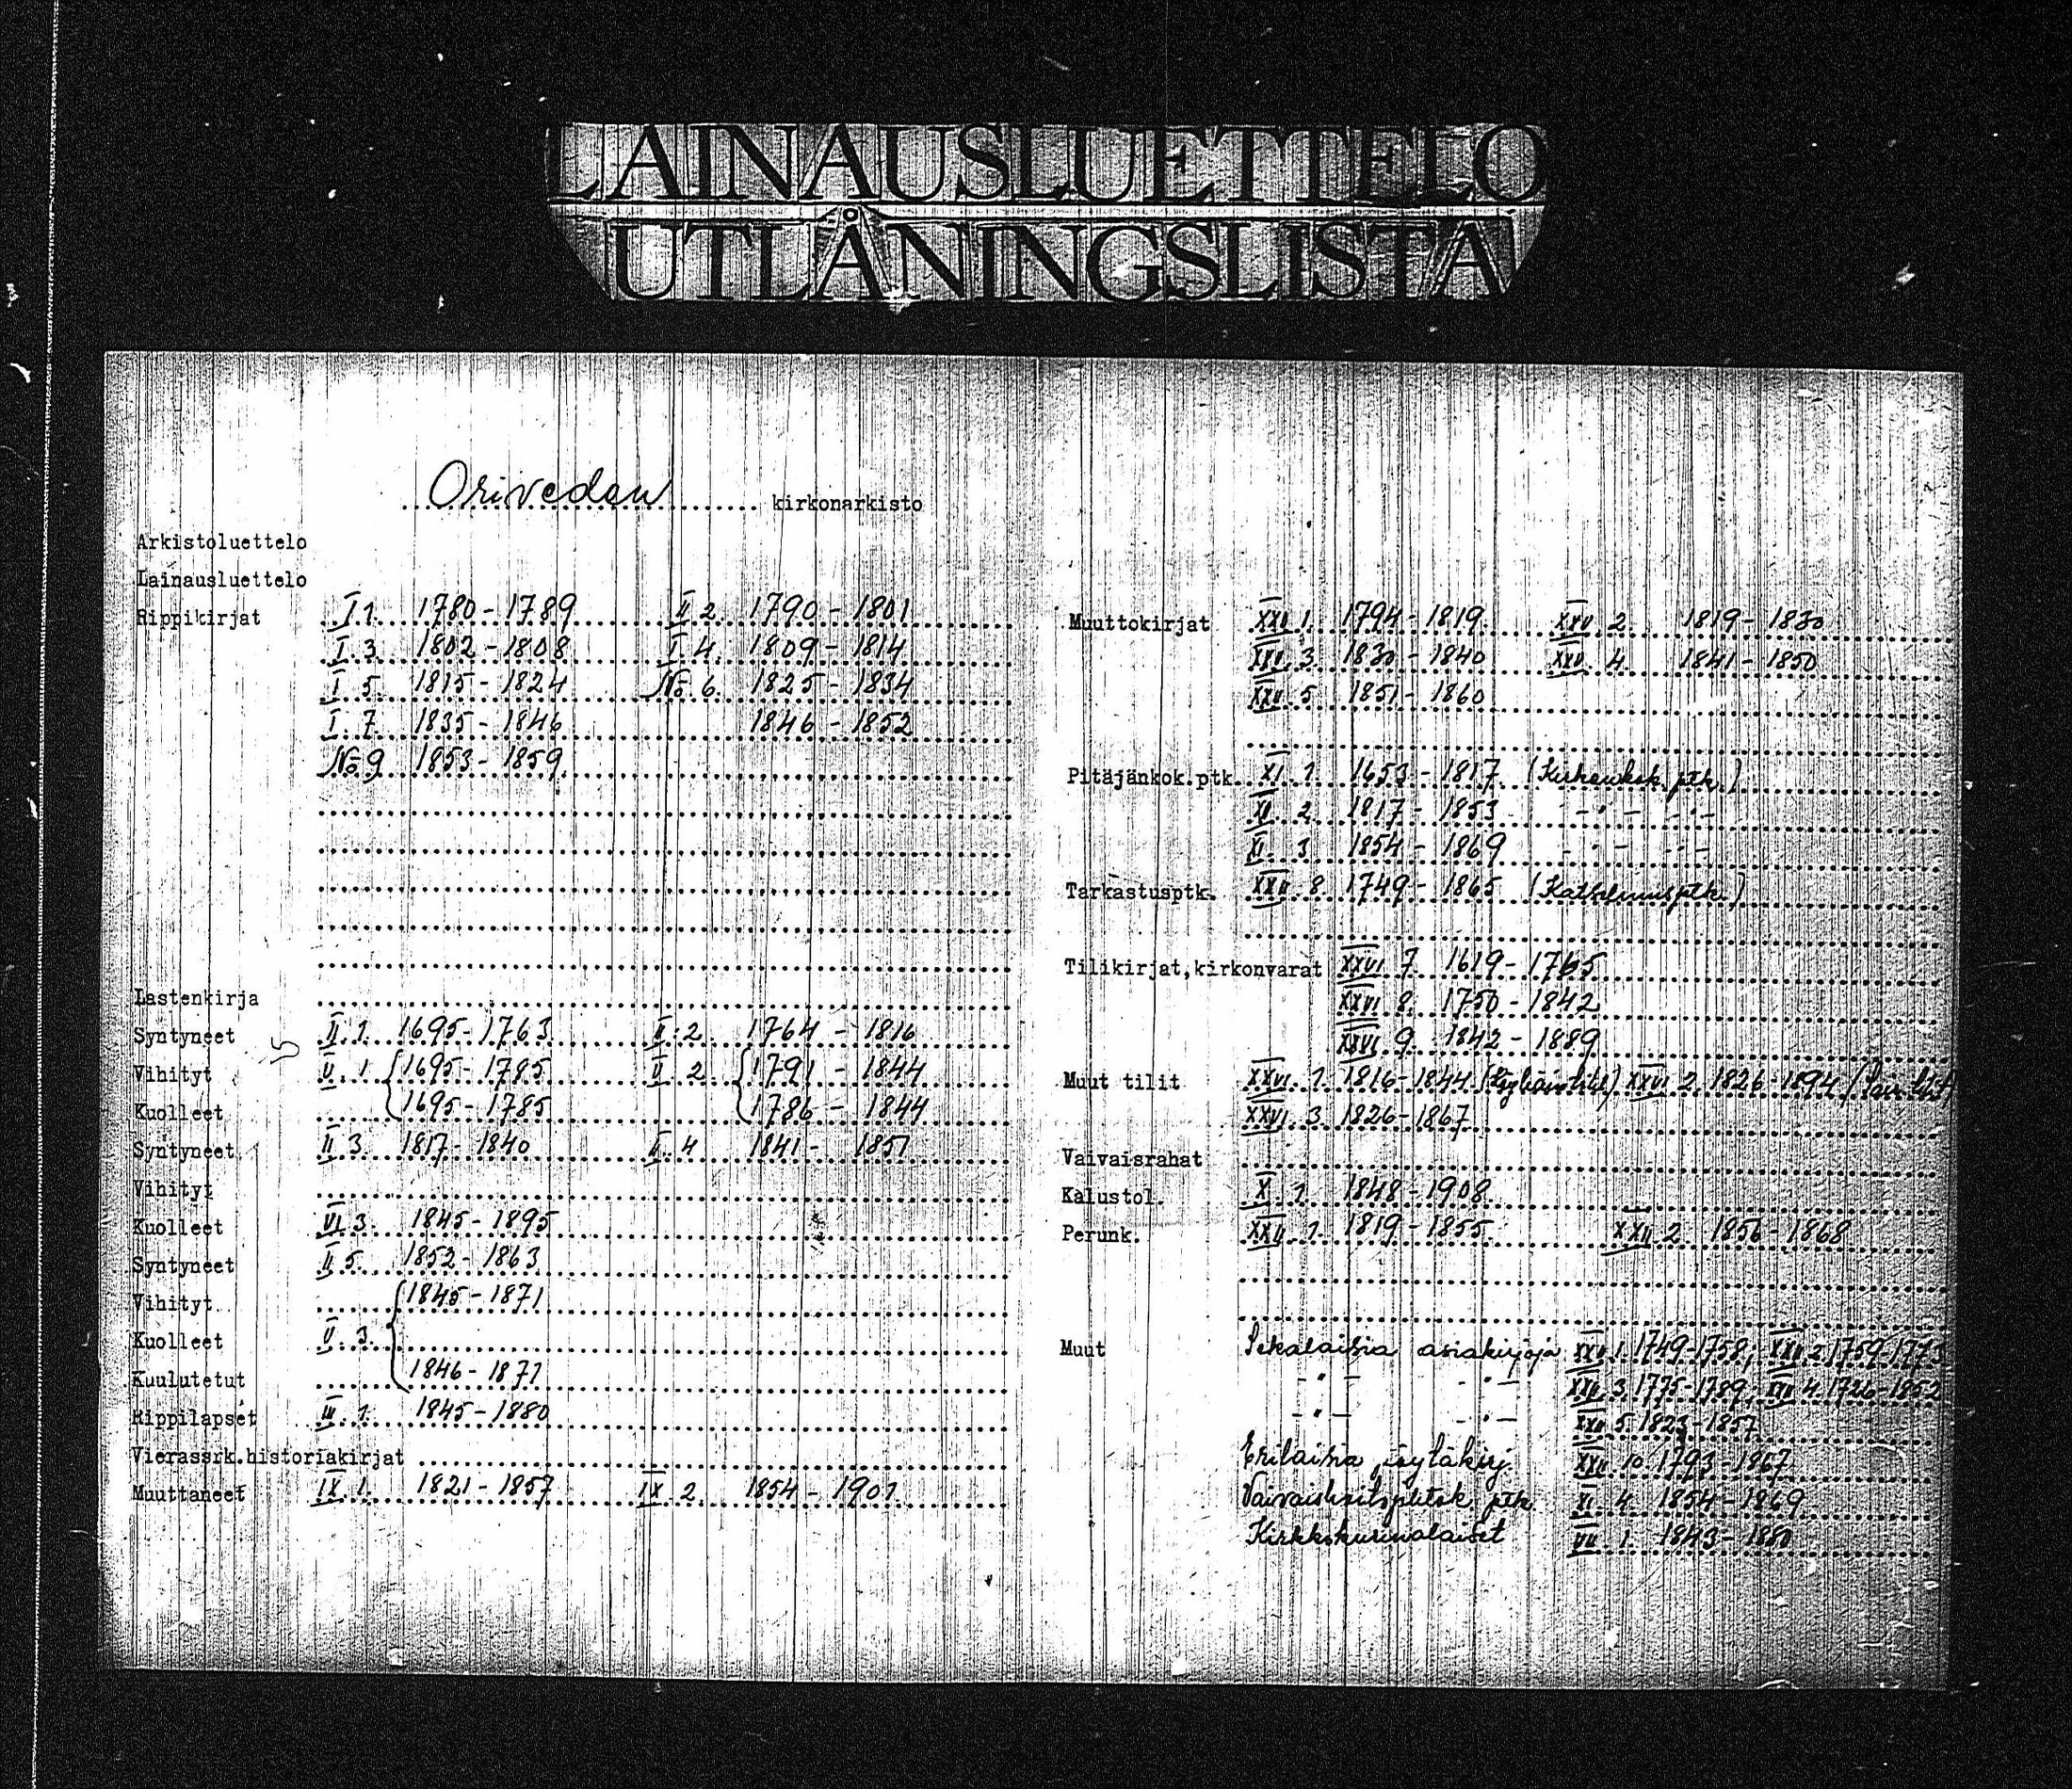 LAINAUSLUETTELO
UTLÅNINGSLISTA
Oriveden kirkonarkisto
Arkistoluettelo
Lainausluettelo
Rippikirjat I.1. 1780-1789 II 2 1790-1801
I.3. 1802-1808 I.4. 1809-1814
I.5. 1815-1824 No 6. 1825-1834
I.7. 1835-1846 1846-1852
No 9 1853-1859
Lastenkirja
Syntyneet II.1. 1695-1763 II.2 1764-1816
Vihityt V.1 1695-1785 V.2 1791-1844
Kuolleet 1695-1785 1786-1844
Syntyneet II 3. 1817-1840 II.4 1841-1851
Vihityt
Kuolleet VI 3. 1845-1895
Syntyneet II 5. 1852-1863
Vihityt 1845-1871
Kuolleet V.3.
Kuulutetut 1846-1871
Rippilapset III.1. 1845-1880
Vierassrk.historiakirjat
Muuttaneet IX.1. 1821-1857 IX 2. 1854-1901
Muuttokirjat XXV.1. 1794-1819 XXV.2. 1819-1830
XXV.3. 1830-1840 XXV.4. 1841-1850
XXV.5 1851-1860
Pitäjänkok.ptk. XI.1. 1653-1817 (Kirkonkok.ptk.)
XI.2. 1817-1853 -"- -"-
XI.3 1854-1869 -"- -"-
Tarkastusptk. 8. 1749-1865
Tilikirjat,kirkonvarat XXVI 7. 1619-1765
XXVI 8. 1750-1842
XXVI.9. 1842-1889
Muut tilit XXVI.1. 1816-1844 XXVI 2. 1826-1894
XXVI.3. 1826-1867
Vaivaisrahat
Kalustol. X.1. 1848-1908
Perunk. XXII.1. 1819-1855 XXII.2. 1856-1868
Muut Sekalaisia asiakirjoja 1. 1749-1758; 2. 1759-1773
-"- -"- 3. 1775-1789, 4. 1726-1852
-"- -"- 5. 1823-1857
Erilaisia 10. 1793-1867
ptk. XI.4. 1854-1869
Kirkkokurinalaiset VII.1. 1843-1880